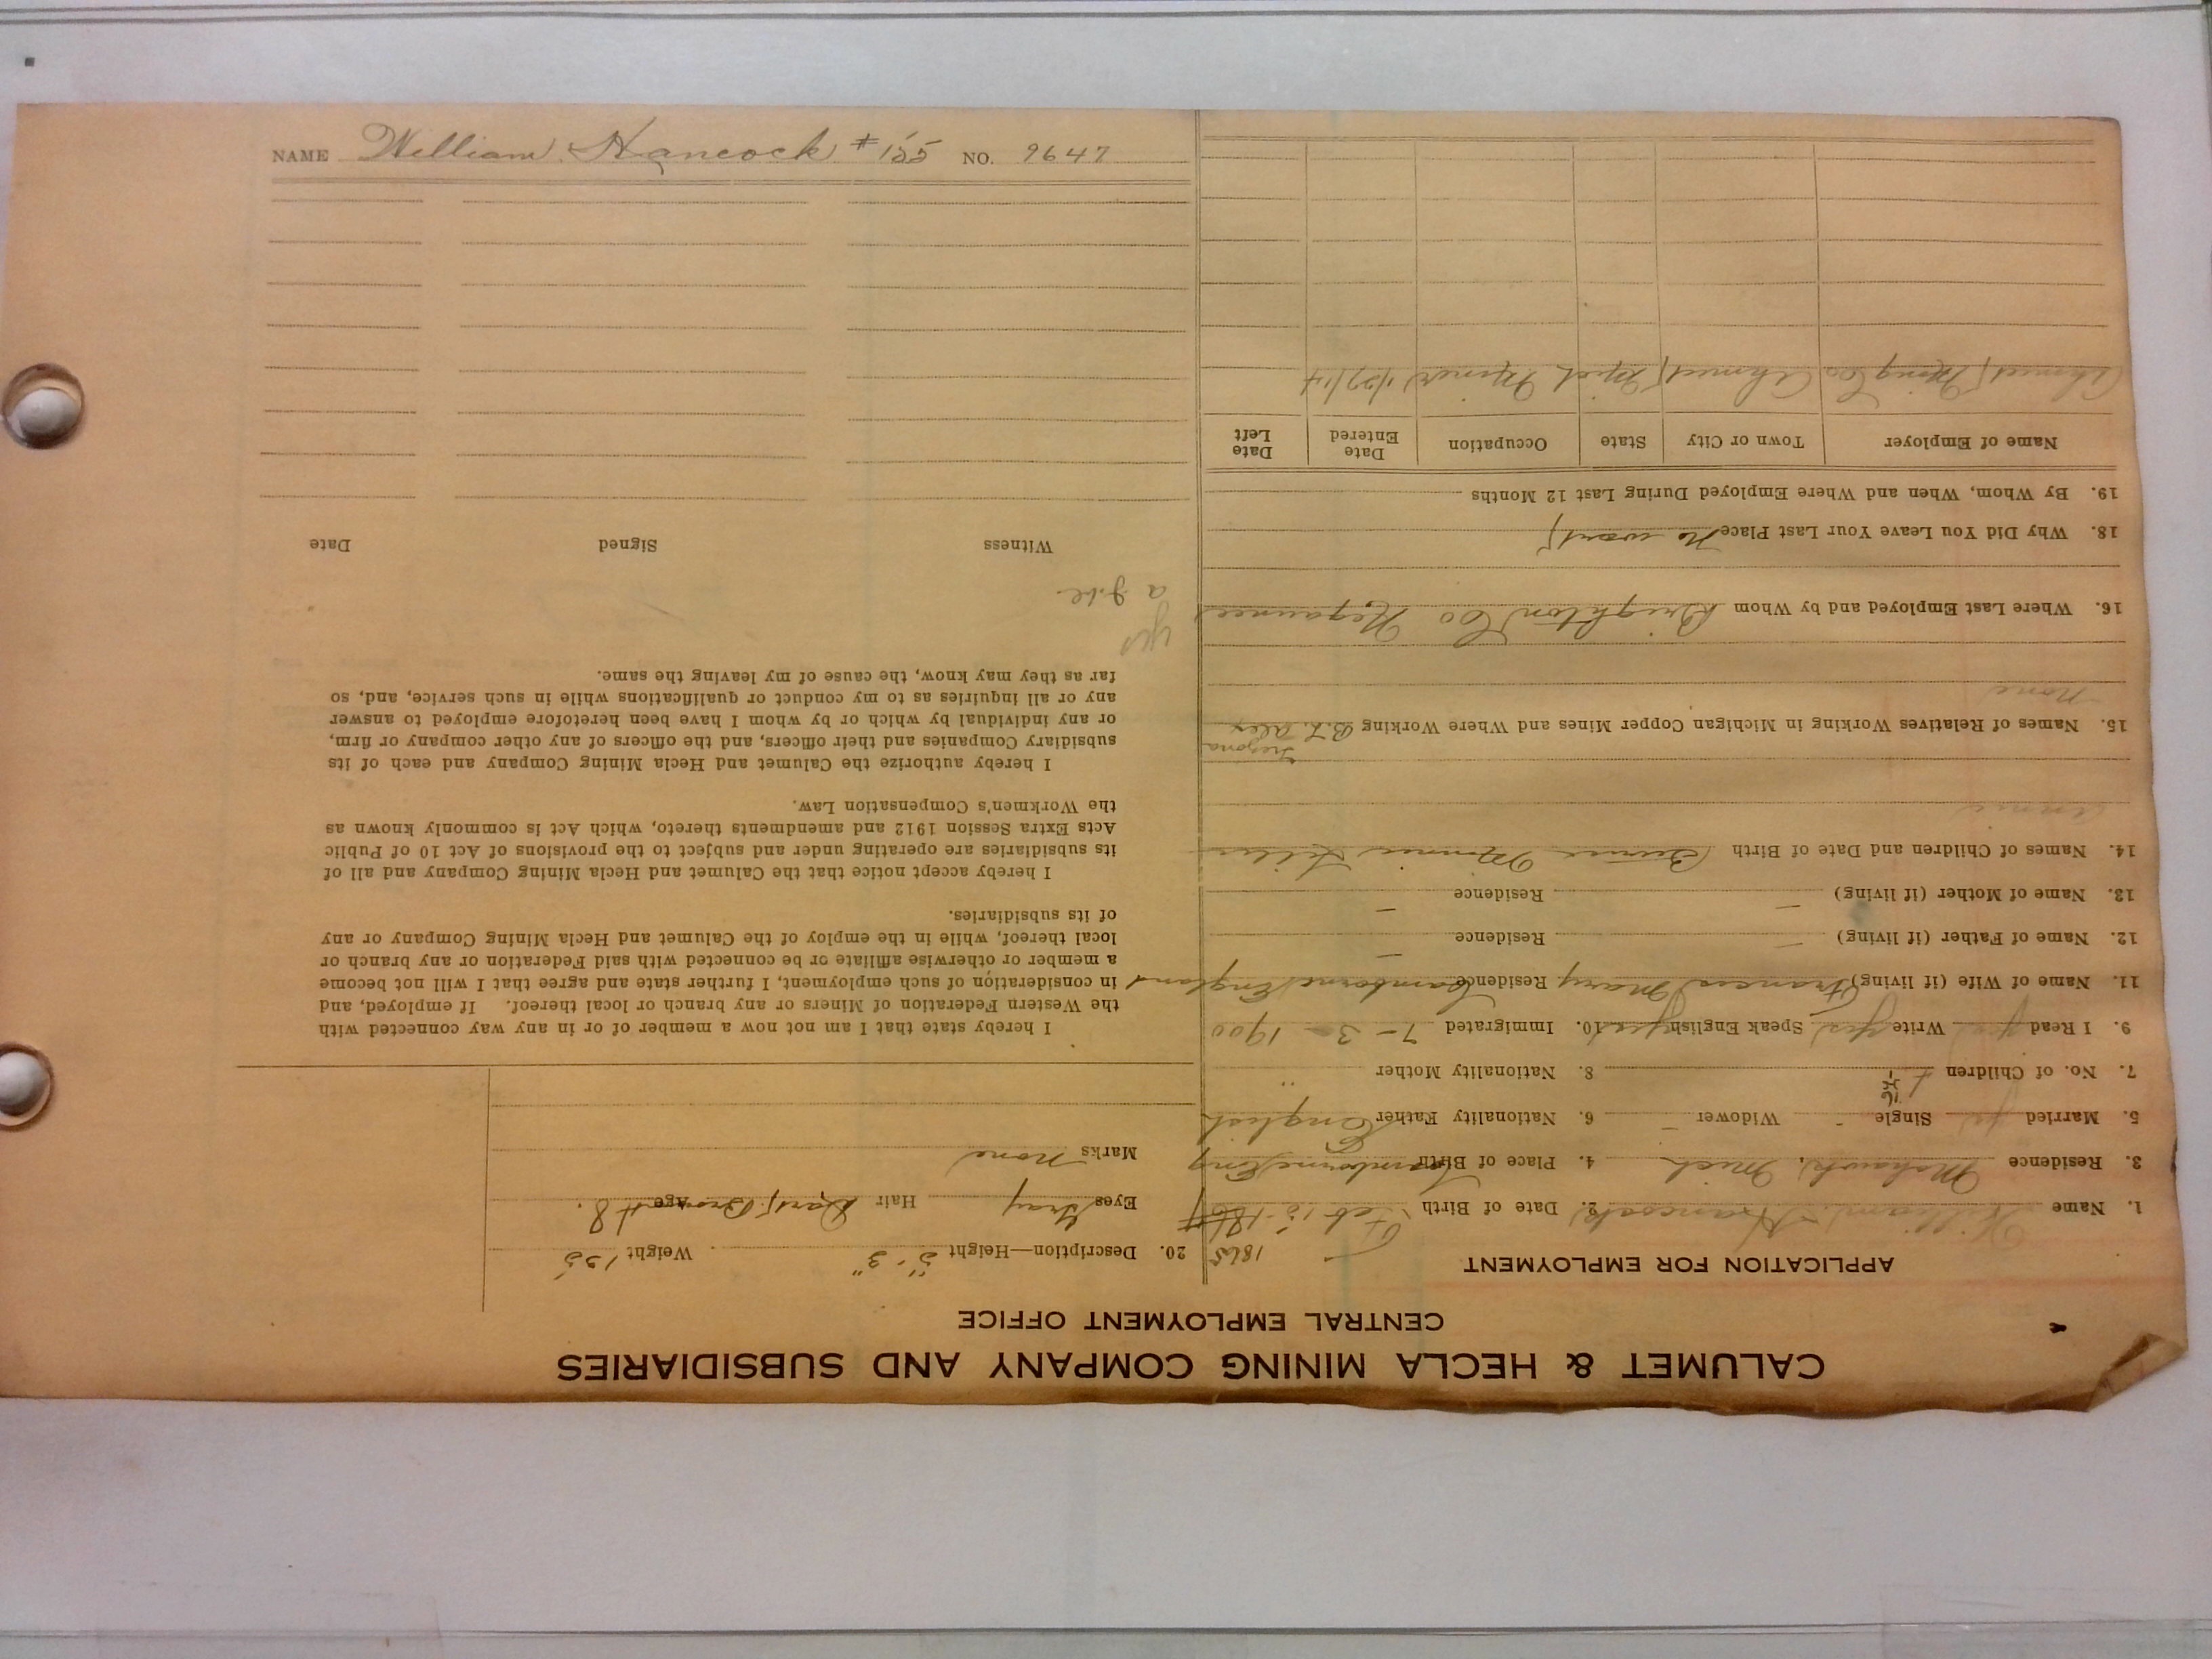 CALUMET & HECLA MINING COMPANY AND SUBSIDIARIES
CENTRAL EMPLOYMENT OFFICE
APPLICATION FOR EMPLOYMENT
1865
1. Name William Hancock 2. Date of Birth Feb 15-
3. Residence Mohawk, Mich 4. Place of Birth Camborne Eng
5. Married yes Single - Widower - 6. Nationality Father English
7. No. of Children 4 8. Nationality Mother "
9. I Read yes Write yes Speak English yes 10. Immigrated 7-3-1900
11. Name of Wife (if living) Frances Mary Residence Camborne England
12. Name of Father (if living) — Residence —
13. Name of Mother (if living) — Residence —
14. Names of Children and Date of Birth Minnie
Annie
15. Names of Relatives Working in Michigan Copper Mines and Where Working B.L. Alex
Tregona
None
16. Where Last Employed and by Whom Brighton Co Negaunee
18. Why Did You Leave Your Last Place No work
19. By Whom, When and Where Employed During Last 12 Months
Name of Employer Town or City State Occupation Date Entered Date Left
Ahmeek Mining Co Ahmeek Mich Miner 1/27/14
20. Description—Height 5'-3" Weight 155
Eyes Gray Hair Dark Brown Age 48.
Marks None
I hereby state that I am not now a member of or in any way connected with
the Western Federation of Miners or any branch or local thereof. If employed, and
in consideration of such employment, I further state and agree that I will not become
a member or otherwise affiliate or be connected with said Federation or any branch or
local thereof, while in the employ of the Calumet and Hecla Mining Company or any
of its subsidiaries.
I hereby accept notice that the Calumet and Hecla Mining Company and all of
its subsidiaries are operating under and subject to the provisions of Act 10 of Public
Acts Extra Session 1912 and amendments thereto, which Act is commonly known as
the Workmen's Compensation Law.
I hereby authorize the Calumet and Hecla Mining Company and each of its
subsidiary Companies and their officers, and the officers of any other company or firm,
or any individual by which or by whom I have been heretofore employed to answer
any or all inquiries as to my conduct or qualifications while in such service, and, so
far as they may know, the cause of my leaving the same.
yes
Witness Signed Date
NAME William Hancock #155 NO. 9647